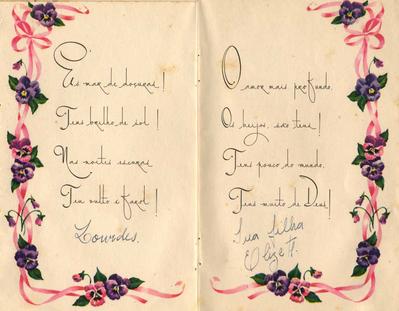 És mar de doçuras!
Tens brilho de sol!
Nas noites escuras
Teu vulto é farol!
Lourdes.
O amor mais profundo,
Os beijos, são teus!
Tens pouco do mundo,
Tens muito de Deus!
Sua filha